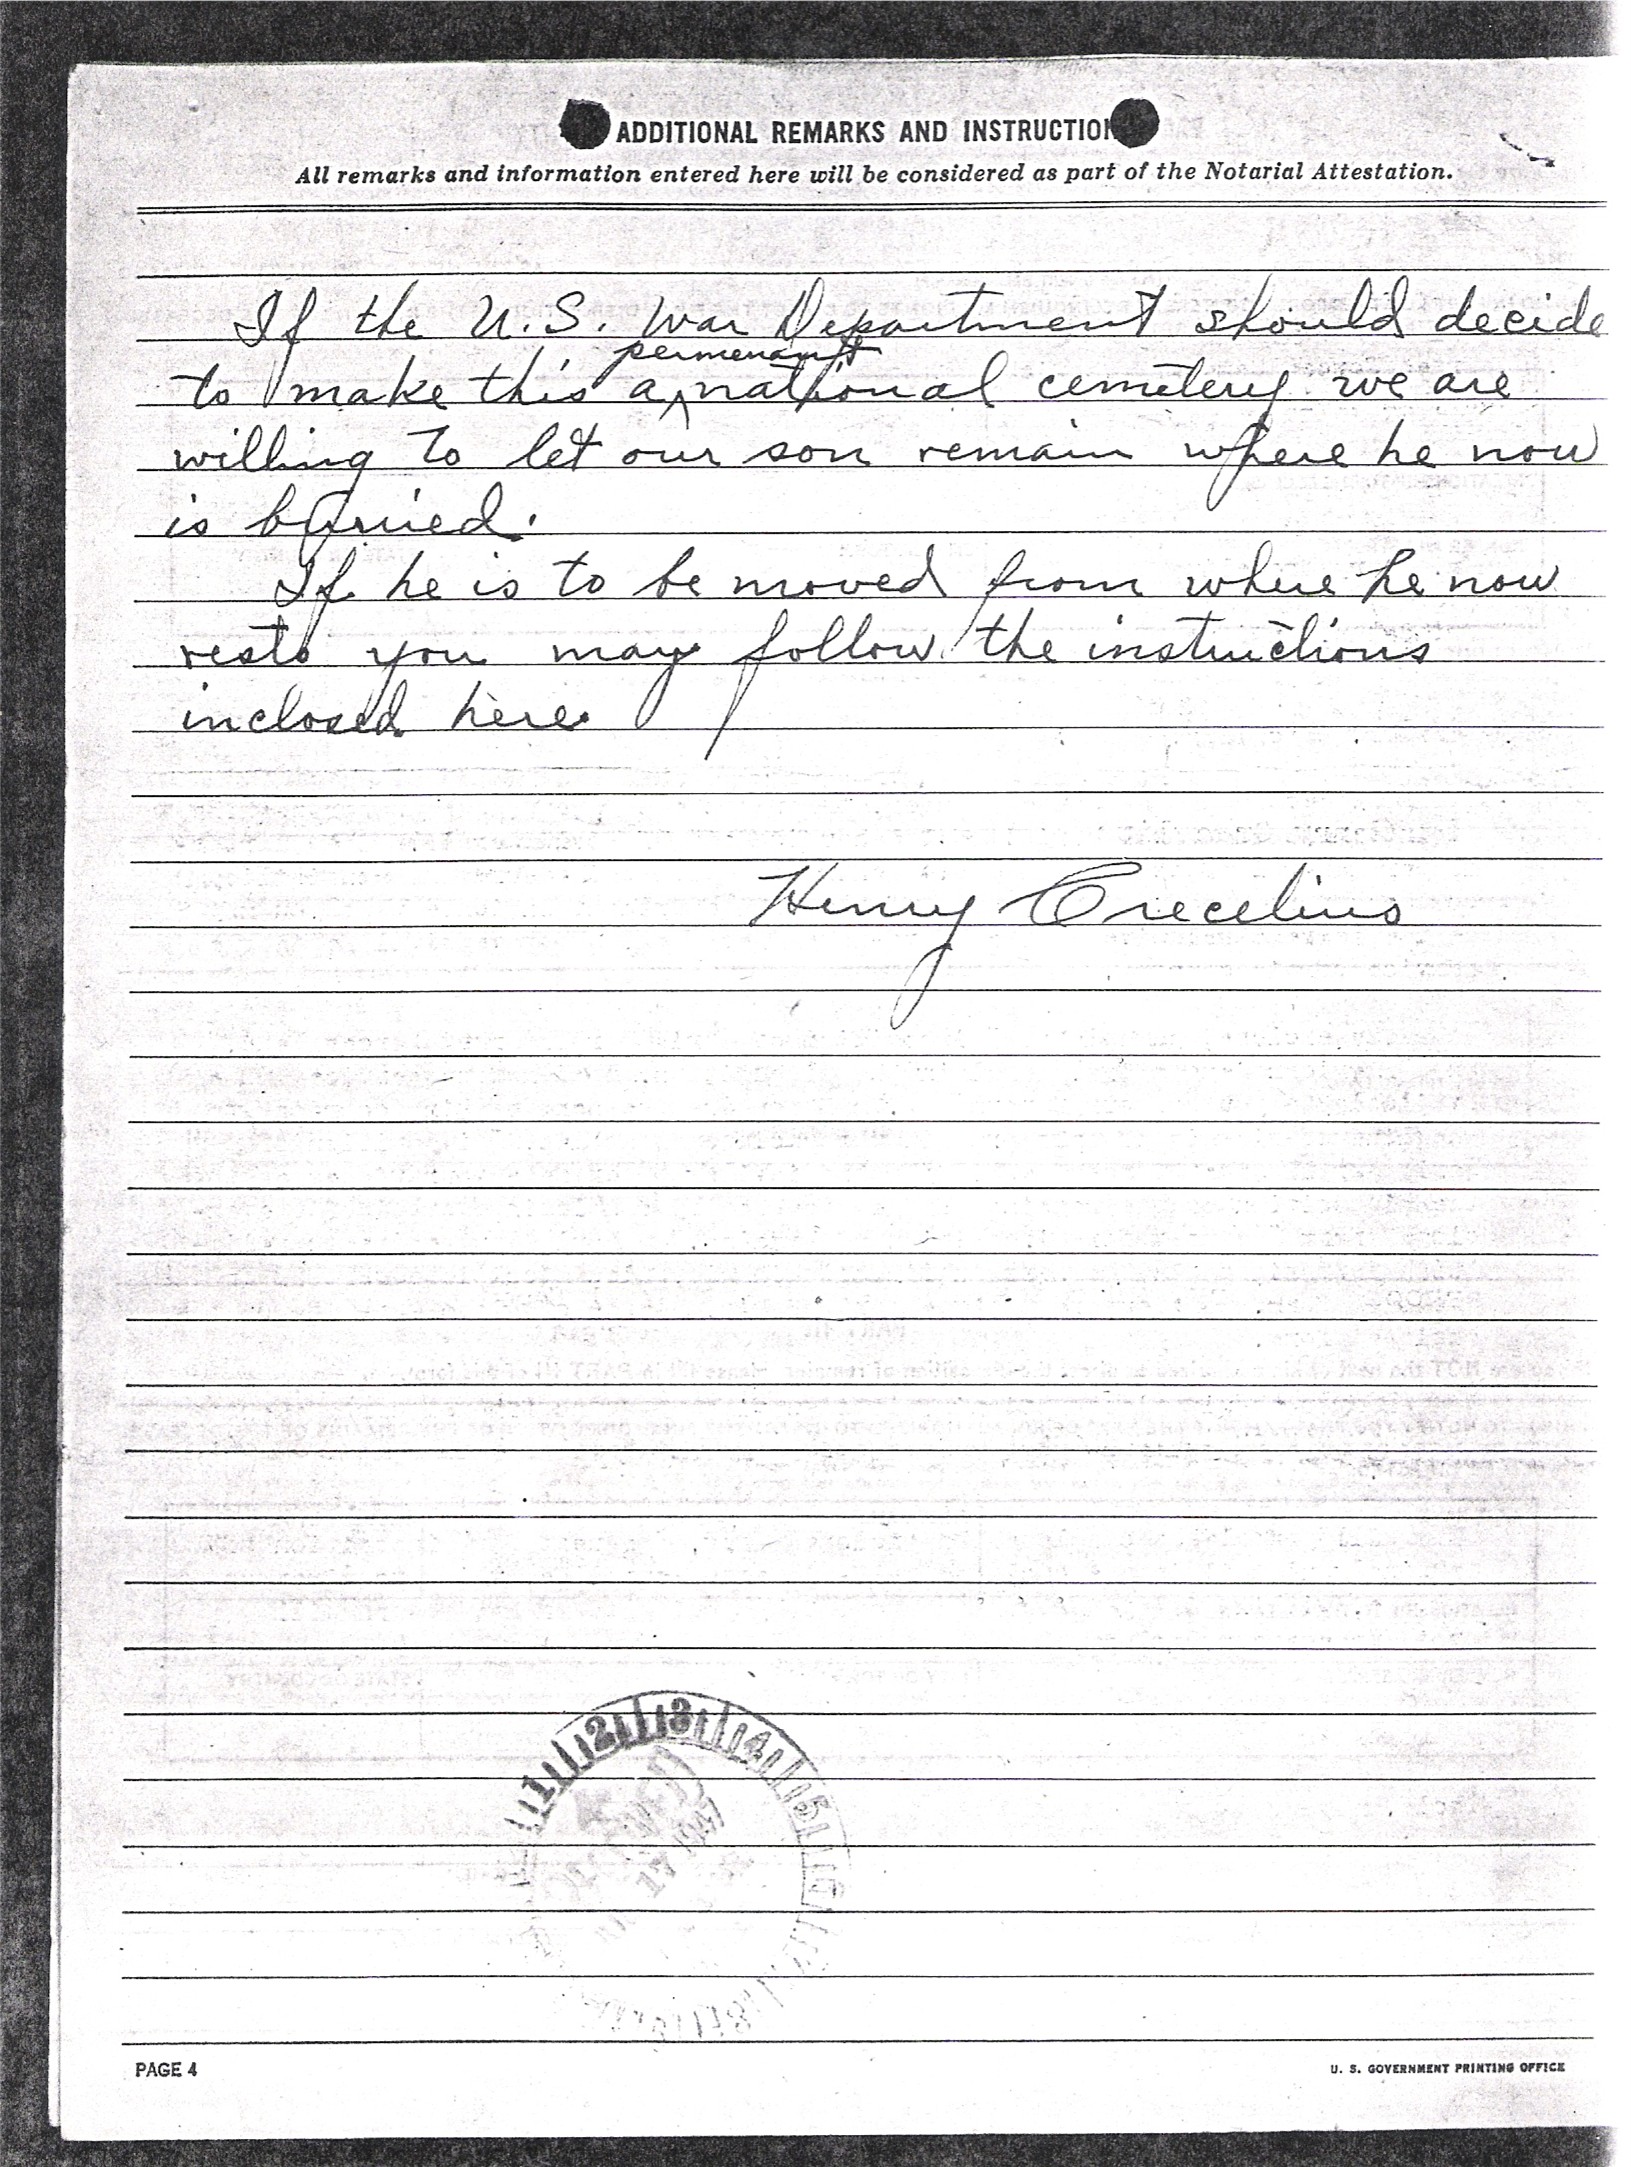 ADDITIONAL REMARKS AND INSTRUCTION
All remarks and information entered here will be considered as part of the Notarial Attestation.
If the U.S. War Department should decide
permenant
to make this a national cemetery we are
willing to let our son remain where he now
is burried.
If he is to be moved from where he now
rests you may follow the instructions
inclosed here
Henry Crecelius
1 2 3 4 5
17 1947
PAGE 4
U. S. GOVERNMENT PRINTING OFFICE